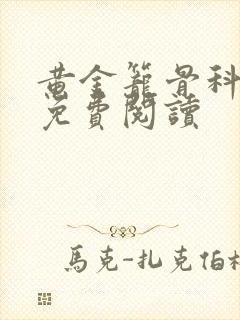 黄金籠骨科
免費閱讀
馬克-扎克伯格